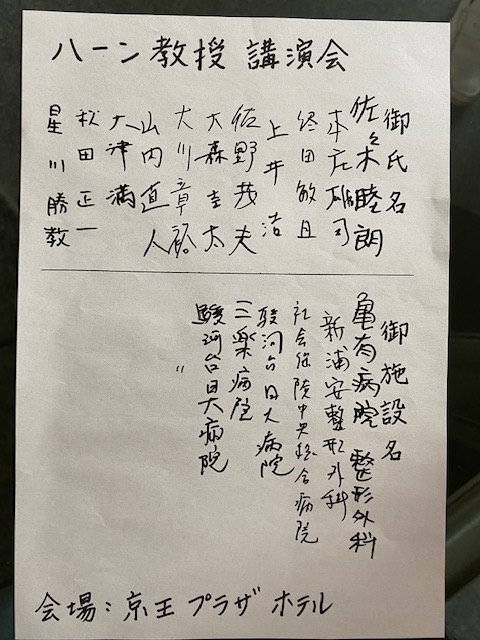 ハーン教授 講演会
御氏名
佐々木睦朗
本庄雄司
終田敏且
上井 浩
佐野茂夫
大森圭太
大川章裕
山内直人
大津満
秋田正一
星川勝教
御施設名
亀有病院 整形外科
新浦安整形外科
社会保険中央総合病院
駿河台日大病院
三楽病院
〃
駿河台日大病院
会場：京王プラザホテル